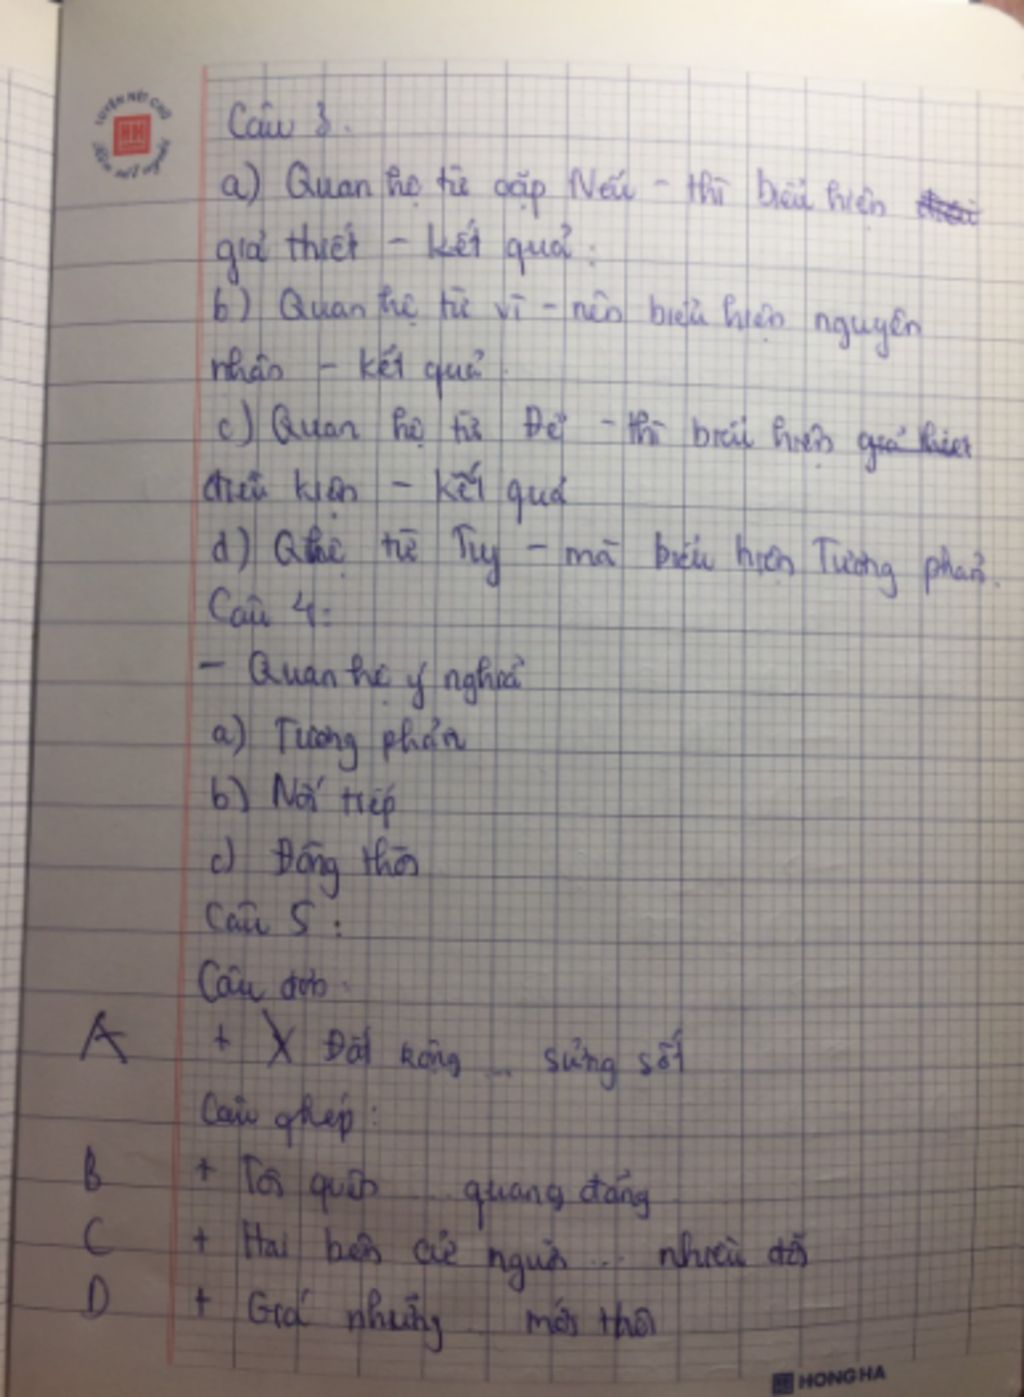 LUYỆN NÉT CHỮ
Rèn nết người
Câu 3.
a) Quan hệ từ cặp Nếu - thì biểu hiện
giả thiết - kết quả.
b) Quan hệ từ vì - nên biểu hiện nguyên
nhân - kết quả.
c) Quan hệ từ Để - thì biểu hiện
điều kiện - kết quả
d) Qhệ từ Tuy - mà biểu hiện Tương phản.
Câu 4:
- Quan hệ ý nghĩa
a) Tương phản
b) Nối tiếp
c) Đồng thời
Câu 5:
Câu đơn.
A + Đất rộng ... sửng sốt
Câu ghép:
B + Tôi quên ... quang đãng
C + Hai bên cứ người ... nhiều đời
D + Giá những ... mới thôi
HONG HA